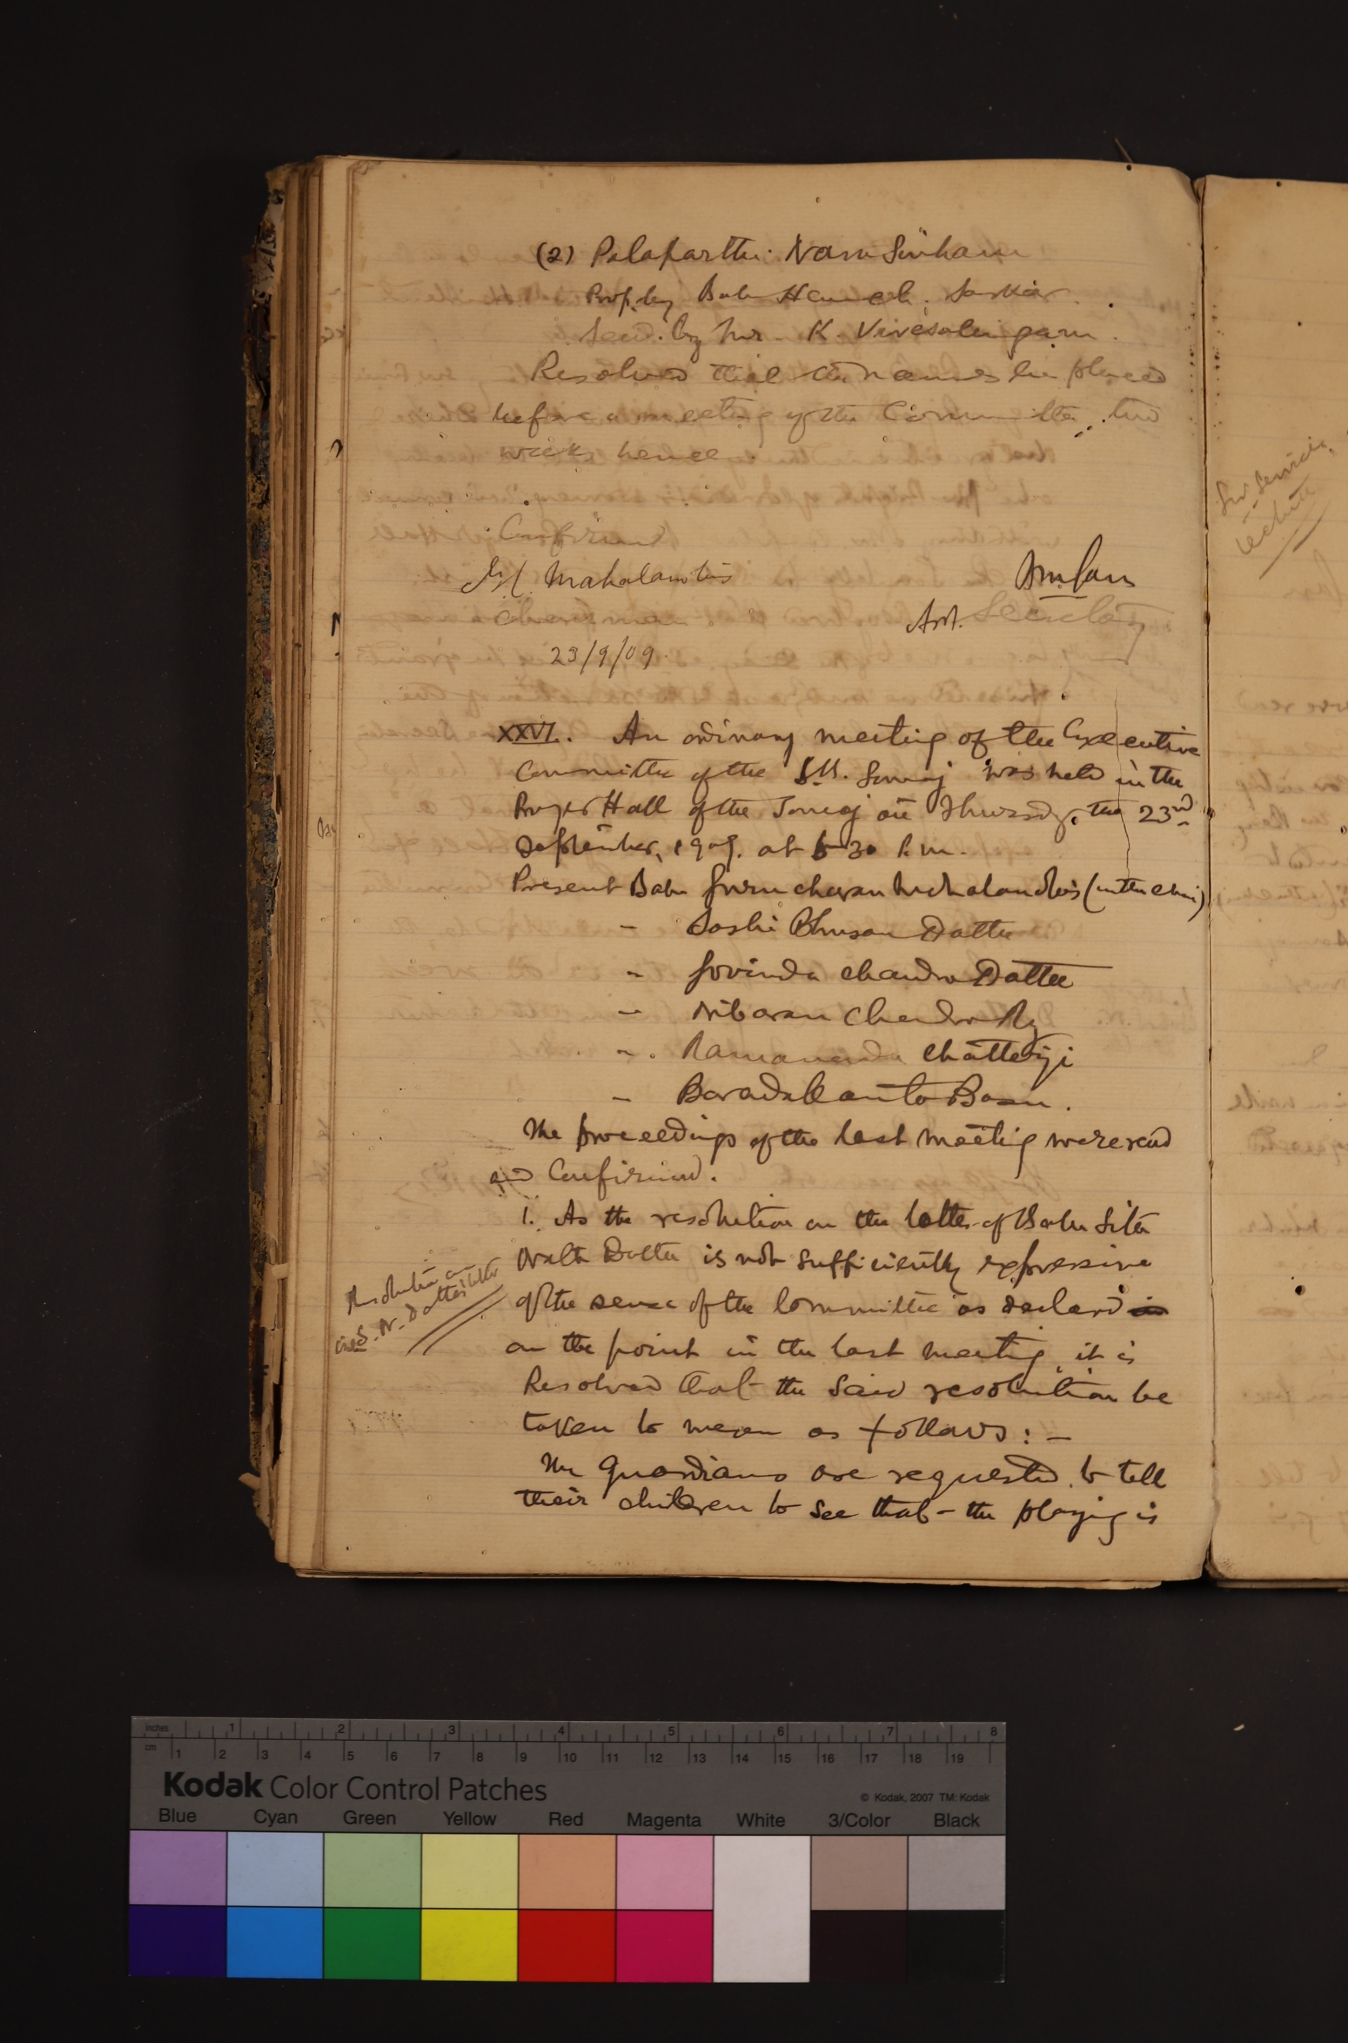 (2) Palaparthi Nara Sinham
Prop. by Babu Hem ch. Sarkar.
Secd. by Mr. K. Viresalingam.
Resolved that the names be placed
before a meeting of the Committee two
weeks hence.
Confirmed
Mahalanobis
Chairman
Asst. Secretary
23/9/09.
XXVI. An ordinary meeting of the Executive
Committee of the S.B. Samaj was held in the
Prayer Hall of the Samaj on Thursday, the 23rd
September, 1909. at 5 30 P.M.
Present Babu Guru charan Mahalanobis (in the chair)
" Sashi Bhusan Dutta
" Govinda chandra Dattee
" Nibaran Chandra Ry
" Ramananda Chatterji
" Baradakanto Basu.
The proceedings of the last meeting were read
and Confirmed.
1. As the resolution on the letter of Babu Sita
Nath Datta is not sufficiently expressive
of the sense of the Committee as declared
on the point in the last meeting, it is
Resolved that the said resolution be
taken to mean as follows: -
The guardians are requested to tell
their children to see that - the playing is
Resolution on
S. N. Datta's letter
Kodak Color Control Patches
© Kodak, 2007 TM: Kodak
inches 1 2 3 4 5 6 7 8
cm 1 2 3 4 5 6 7 8 9 10 11 12 13 14 15 16 17 18 19
Blue Cyan Green Yellow Red Magenta White 3/Color Black